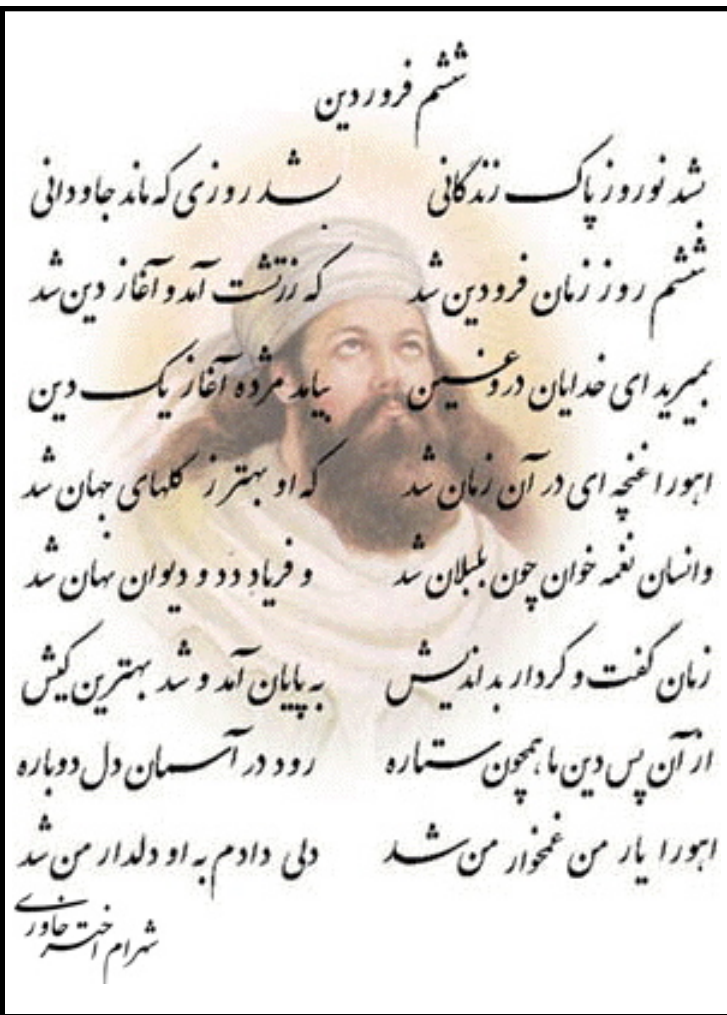 ششم فروردین
شد نوروز پاک زندگانی بشد روزی که ماند جاودانی
ششم روز زمان فرودین شد که زرتشت آمد و آغاز دین شد
بمیرید ای خدایان دروغین بیامد مژده آغاز یک دین
اهورا غنچه ای در آن زمان شد که او بهتر ز گلهای جهان شد
وانسان نغمه خوان چون بلبلان شد و فریاد دد و دیوان نهان شد
زمان گفت و کردار بد اندیش به پایان آمد و شد بهترین کیش
از آن پس دین ما همچون ستاره رود در آسمان دل دوباره
اهورا یار من غمخوار من شد دلی دادم به او دلدار من شد
شهرام اختر خاوری